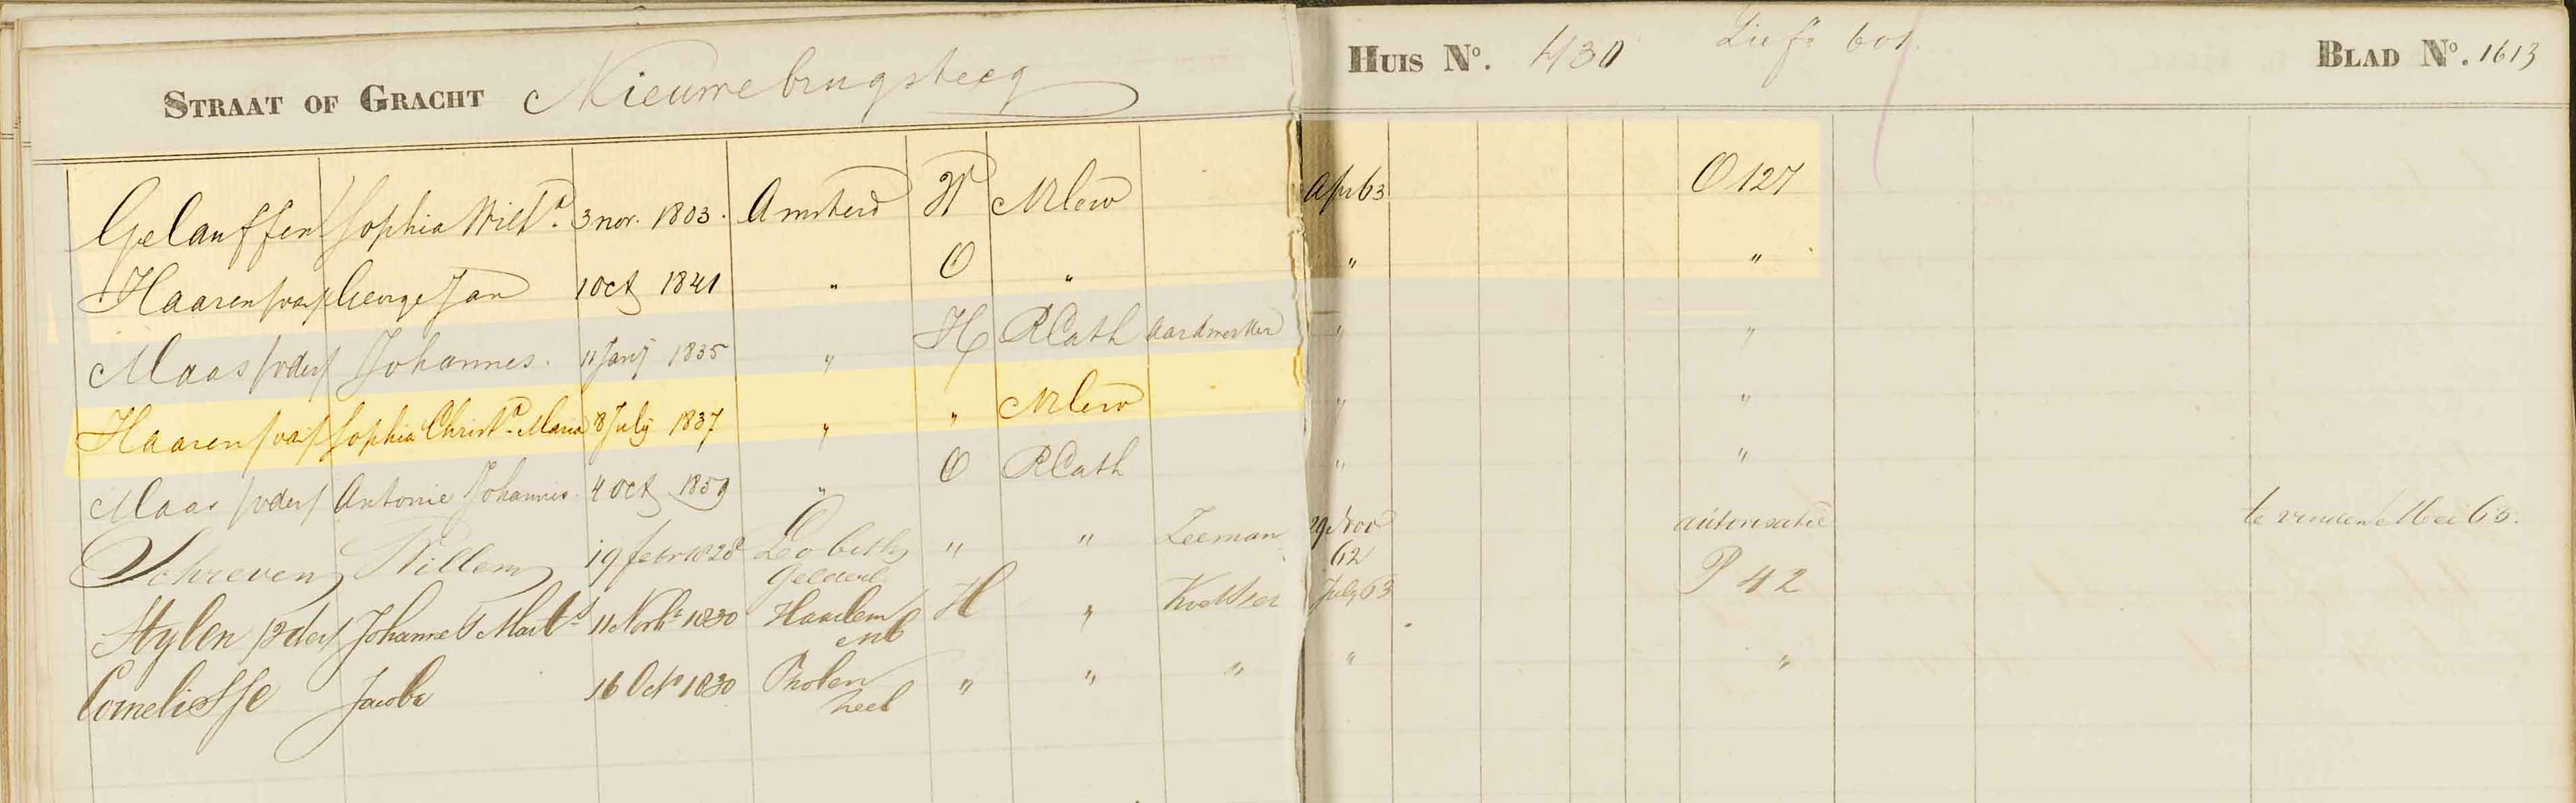 STRAAT OF GRACHT Nieuwebrugsteeg HUIS No. 430 BLAD No. 1613
Gelauffen Sophia Wilha. 3 nov. 1803. Amsterd W NHerv Apr 63 O 127
Haaren /van/ George Jan 1 Oct 1841 " O " " "
Maas /vder/ Johannes. 11 Janij 1835 " H RCath Aardwerker " "
Haaren /van/ Sophia Christa. Maria 8 July 1837 " " NHerv " "
Maas /vder/ Antonie Johannes 4 Oct 1859 " O RCath " "
Schreven Willem 19 febr 1828 Lobith " " Zeeman 29 Nov autorisatie
Gelderl 62
Stylen /vder/ Johannes Marts 11 Novbr 1830 Haarlem H " July 63 P 42
Cornelisse Jacoba 16 Octr 1830 Tholen " " " " "
Zeel